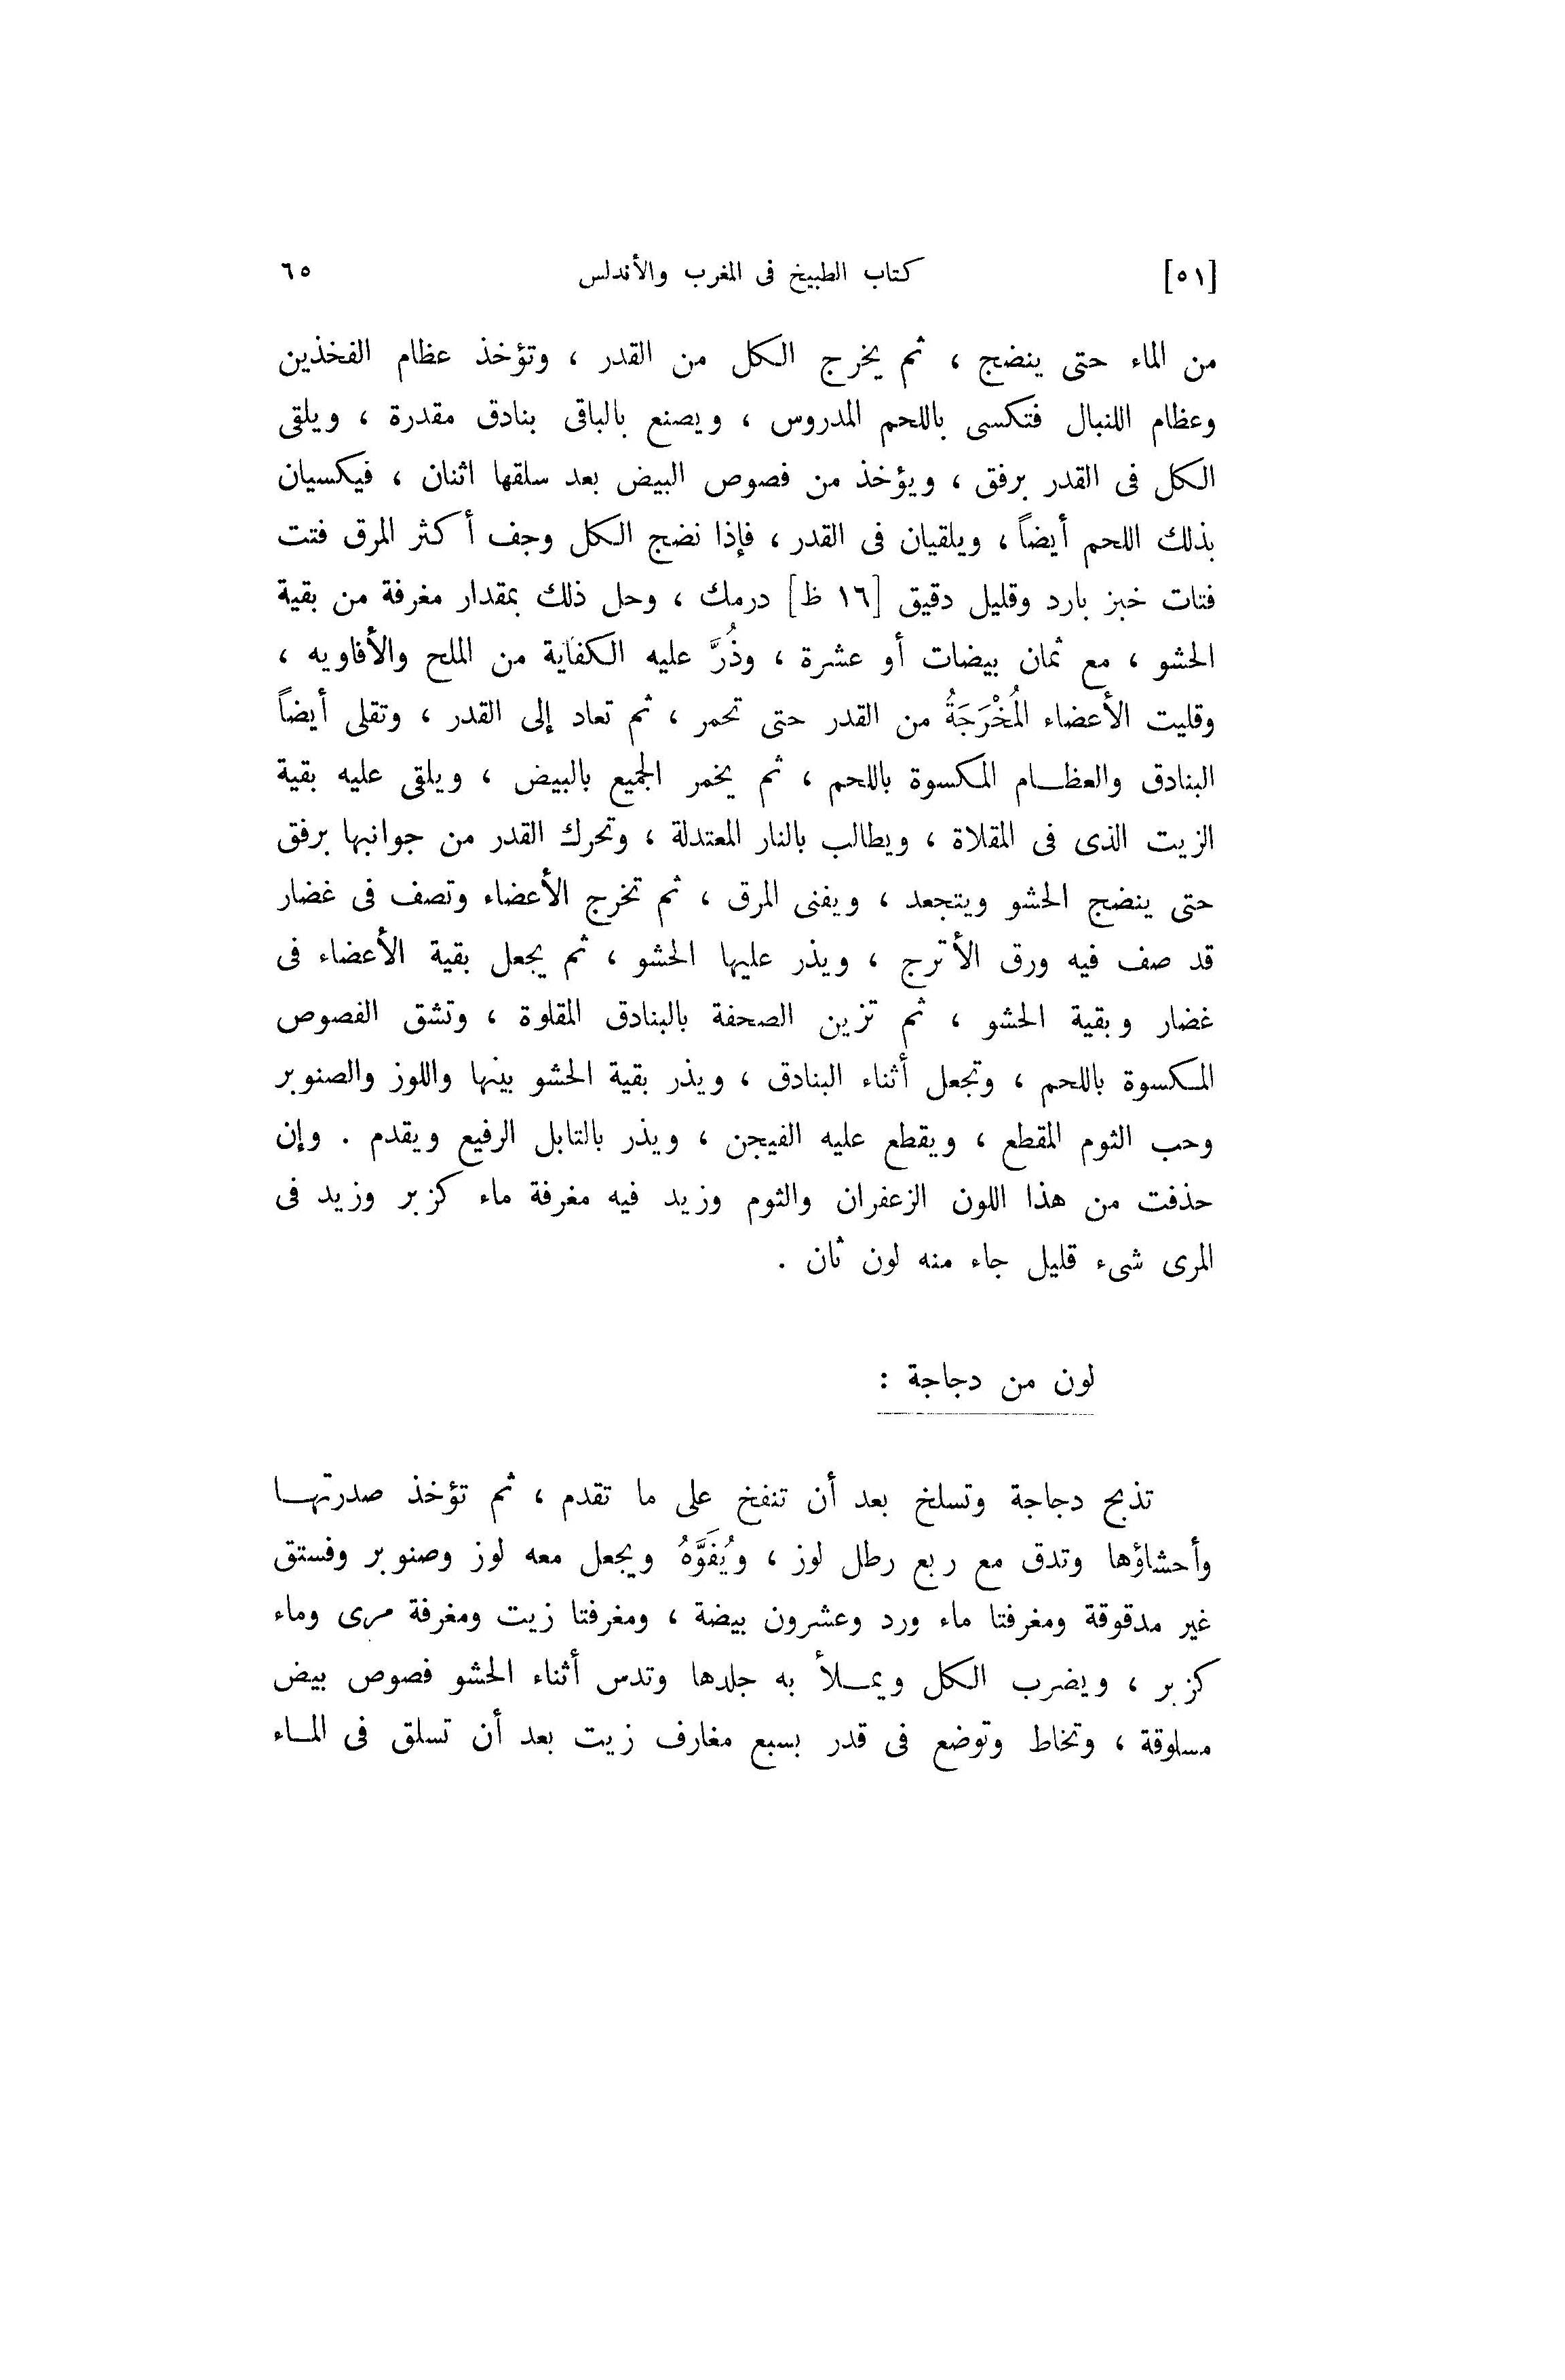 [٥١] كتاب الطبيخ فى المغرب والأندلس ٦٥
من الماء حتى ينضج ، ثم يخرج الكل من القدر ، وتؤخذ عظام الفخذين
وعظام اللنبال فتكسى باللحم المدروس ، ويصنع بالباقى بنادق مقدرة ، ويلقى
الكل فى القدر برفق ، ويؤخذ من فصوص البيض بعد سلقها اثنان ، فيكسيان
بذلك اللحم أيضاً ، ويلقيان فى القدر ، فإذا نضج الكل وجف أكثر المرق فتت
فتات خبز بارد وقليل دقيق [١٦ ظ] درمك ، وحل ذلك بمقدار مغرفة من بقية
الحشو ، مع ثمان بيضات أو عشرة ، وذُرَّ عليه الكفاية من الملح والأفاويه ،
وقليت الأعضاء المُخْرَجَةُ من القدر حتى تحمر ، ثم تعاد إلى القدر ، وتقلى أيضاً
البنادق والعظـام المكسوة باللحم ، ثم يخمر الجميع بالبيض ، ويلقى عليه بقية
الزيت الذى فى المقلاة ، ويطالب بالنار المعتدلة ، وتحرك القدر من جوانبها برفق
حتى ينضج الحشو ويتجعد ، ويفنى المرق ، ثم تخرج الأعضاء وتصف فى غضار
قد صف فيه ورق الأترج ، ويذر عليها الحشو ، ثم يجعل بقية الأعضاء فى
غضار وبقية الحشو ، ثم تزين الصحفة بالبنادق المقلوة ، وتشق الفصوص
المكسوة باللحم ، وتجعل أثناء البنادق ، ويذر بقية الحشو بينها واللوز والصنوبر
وحب الثوم المقطع ، ويقطع عليه الفيجن ، ويذر بالتابل الرفيع ويقدم . وإن
حذفت من هذا اللون الزعفران والثوم وزيد فيه مغرفة ماء كزبر وزيد فى
المرى شىء قليل جاء منه لون ثان .
لون من دجاجة :
تذبح دجاجة وتسلخ بعد أن تنفخ على ما تقدم ، ثم تؤخذ صدرتهـا
وأحشاؤها وتدق مع ربع رطل لوز ، ويُفَوَّهُ ويجعل معه لوز وصنوبر وفستق
غير مدقوقة ومغرفتا ماء ورد وعشرون بيضة ، ومغرفتا زيت ومغرفة مرى وماء
كزبر ، ويضرب الكل ويمـلأ به جلدها وتدس أثناء الحشو فصوص بيض
مسلوقة ، وتخاط وتوضع فى قدر بسبع مغارف زيت بعد أن تسلق فى المـاء